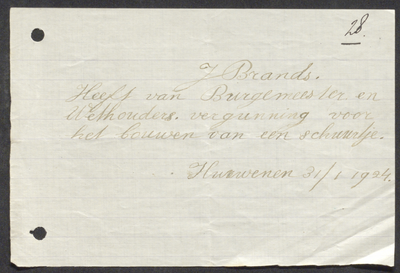 28.
J Brands.
Heeft van Burgemeester en
Wethouders. vergunning voor
het bouwen van een schuurtje.
Hurwenen 31/1 1924.